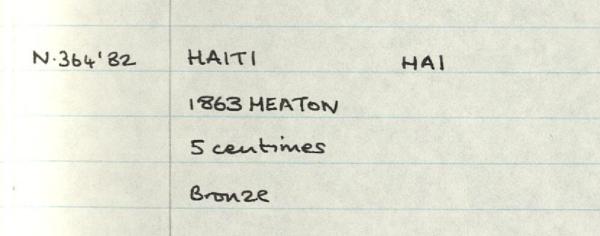 N.364'82 HAITI HAI
1863 HEATON
5 centimes
Bronze